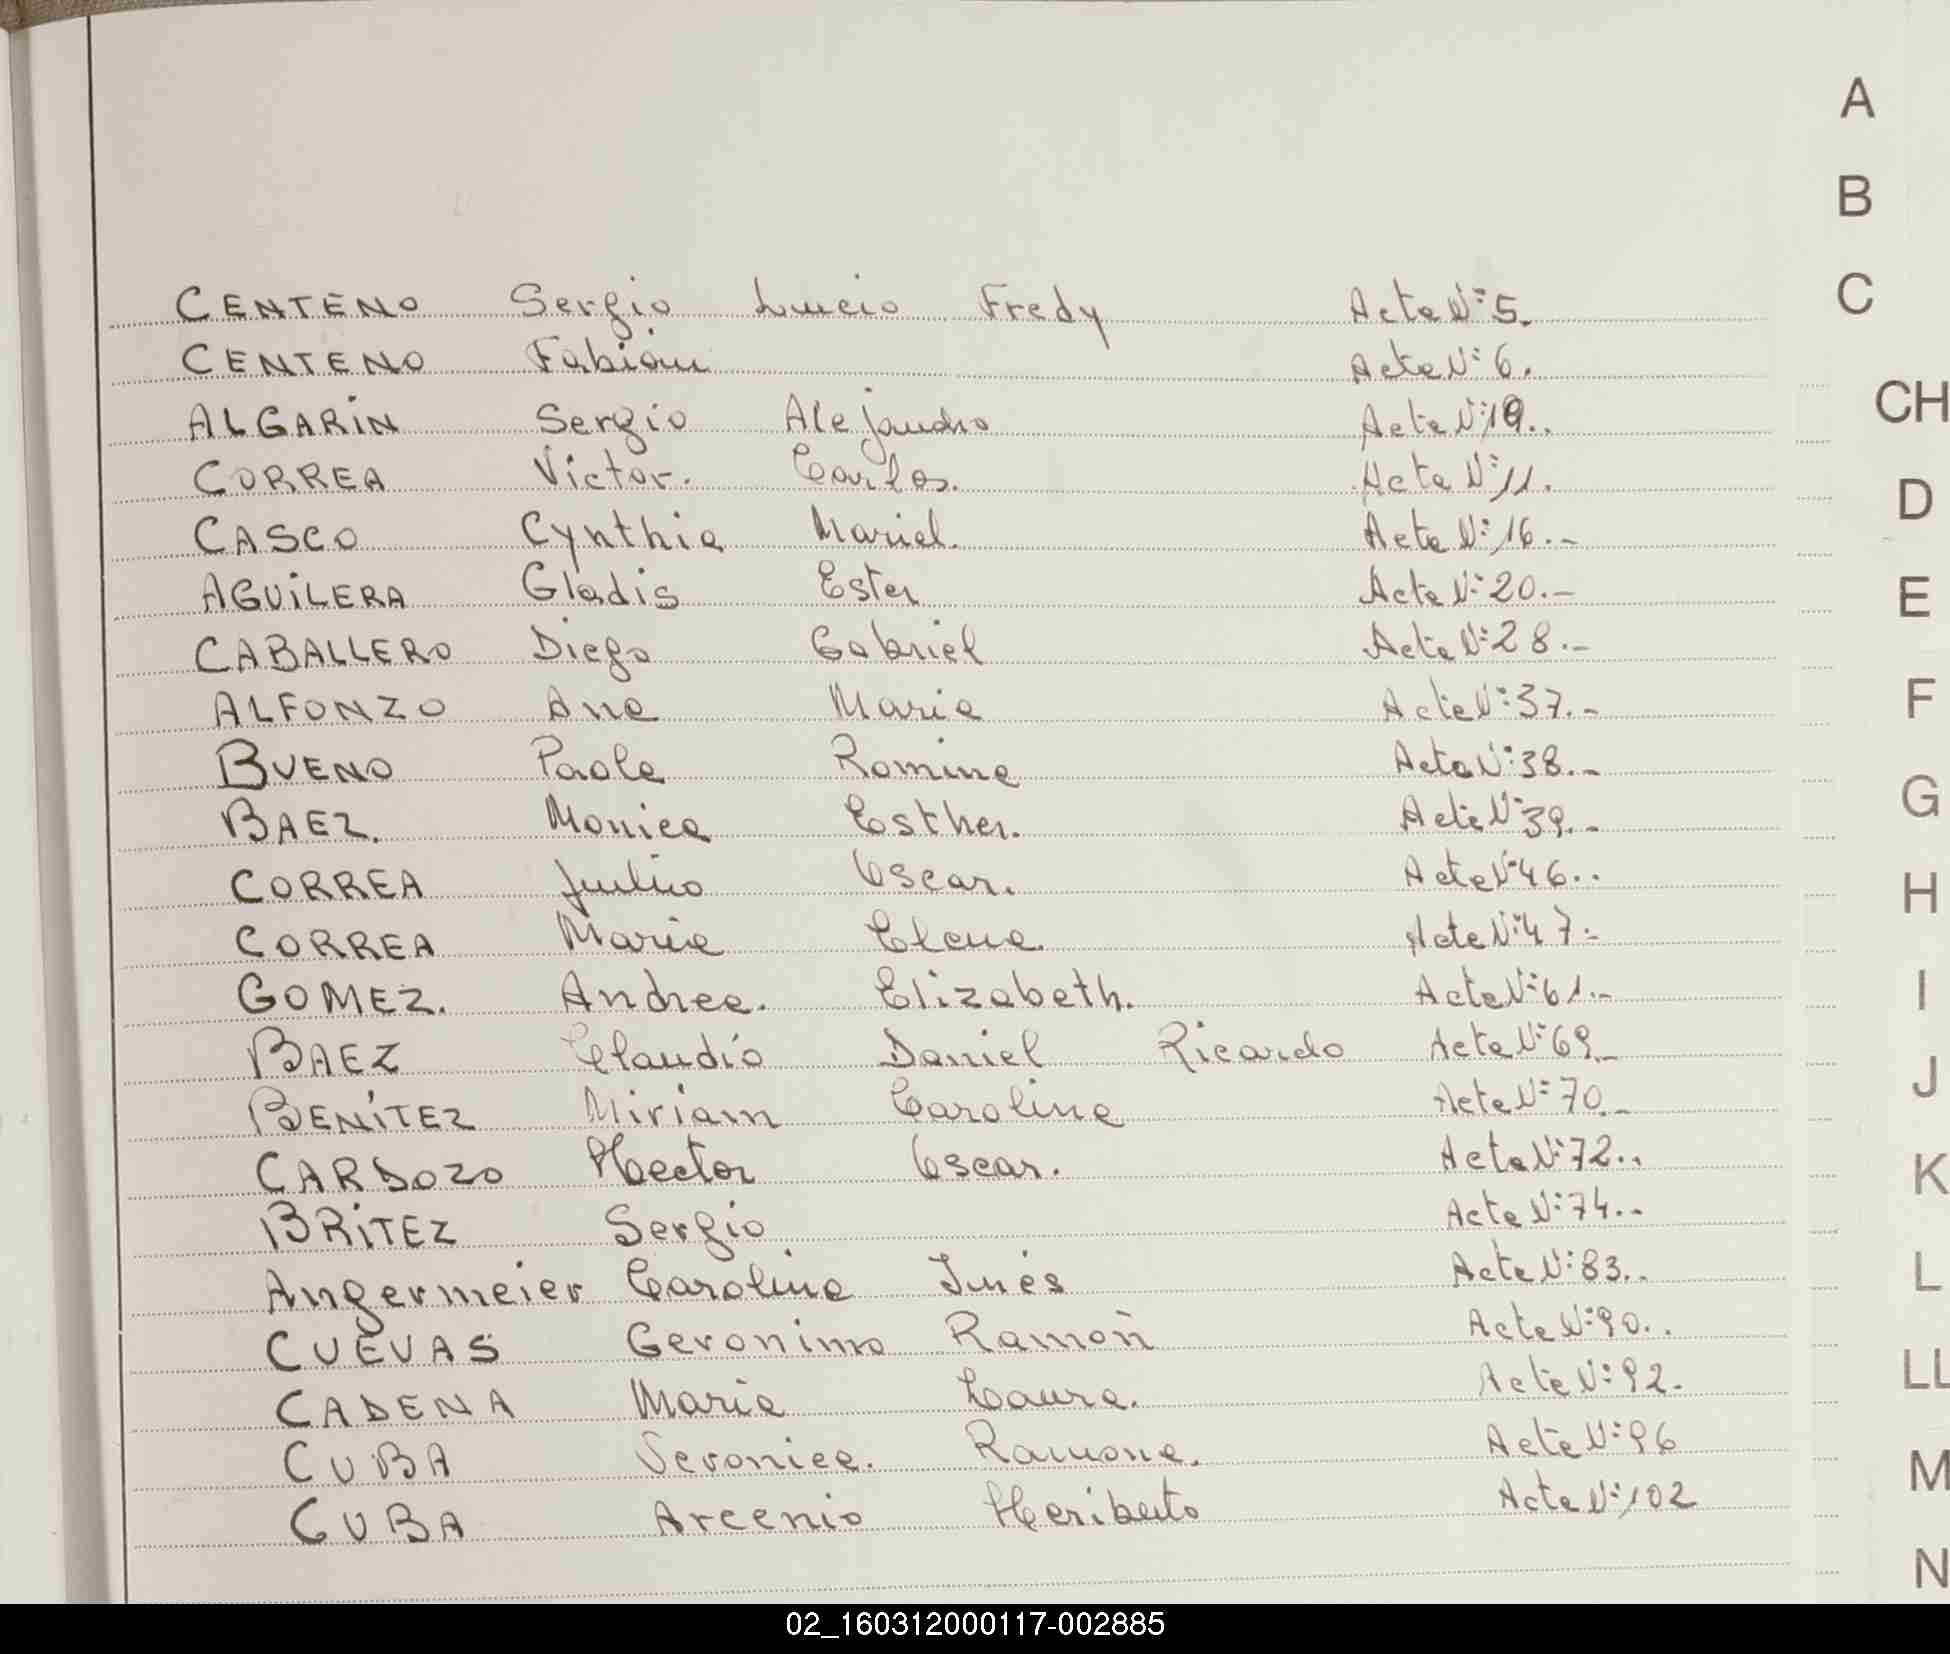 A
B
C
CENTENO Sergio Lucio Fredy Acta Nº 5.
CENTENO Fabián Acta Nº 6.
CH
ALGARÍN Sergio Alejandro Acta Nº
CORREA Victor. Carlos. Acta Nº 11.
D
CASCO Cynthia Mariel. Acta Nº 16.-
E
AGUILERA Gladis Ester Acta Nº 20.-
CABALLERO Diego Gabriel Acta Nº 28.-
F
ALFONZO Ana Maria Acta Nº 37.-
BUENO Paola Romina Acta Nº 38.-
G
BAEZ. Monica Esther. Acta Nº 39.-
CORREA Julio Oscar. Acta Nº 46..
H
CORREA Maria Elena. Acta Nº 47.-
GOMEZ. Andrea. Elizabeth. Acta Nº 61.-
I
BAEZ Claudio Daniel Ricardo Acta Nº 69.-
J
BENÍTEZ Miriam Carolina Acta Nº 70.-
CARDOZO Hector Oscar. Acta Nº 72..
K
BRÍTEZ Sergio Acta Nº 74..
Angermeier Carolina Inés Acta Nº 83..
L
CUEVAS Geronimo Ramón Acta Nº 90..
LL
CADENA Maria Laura. Acta Nº 92.
CUBA Veronica. Ramona. Acta Nº 96
M
CUBA Arcenio Heriberto Acta Nº 102
N
02_160312000117-002885